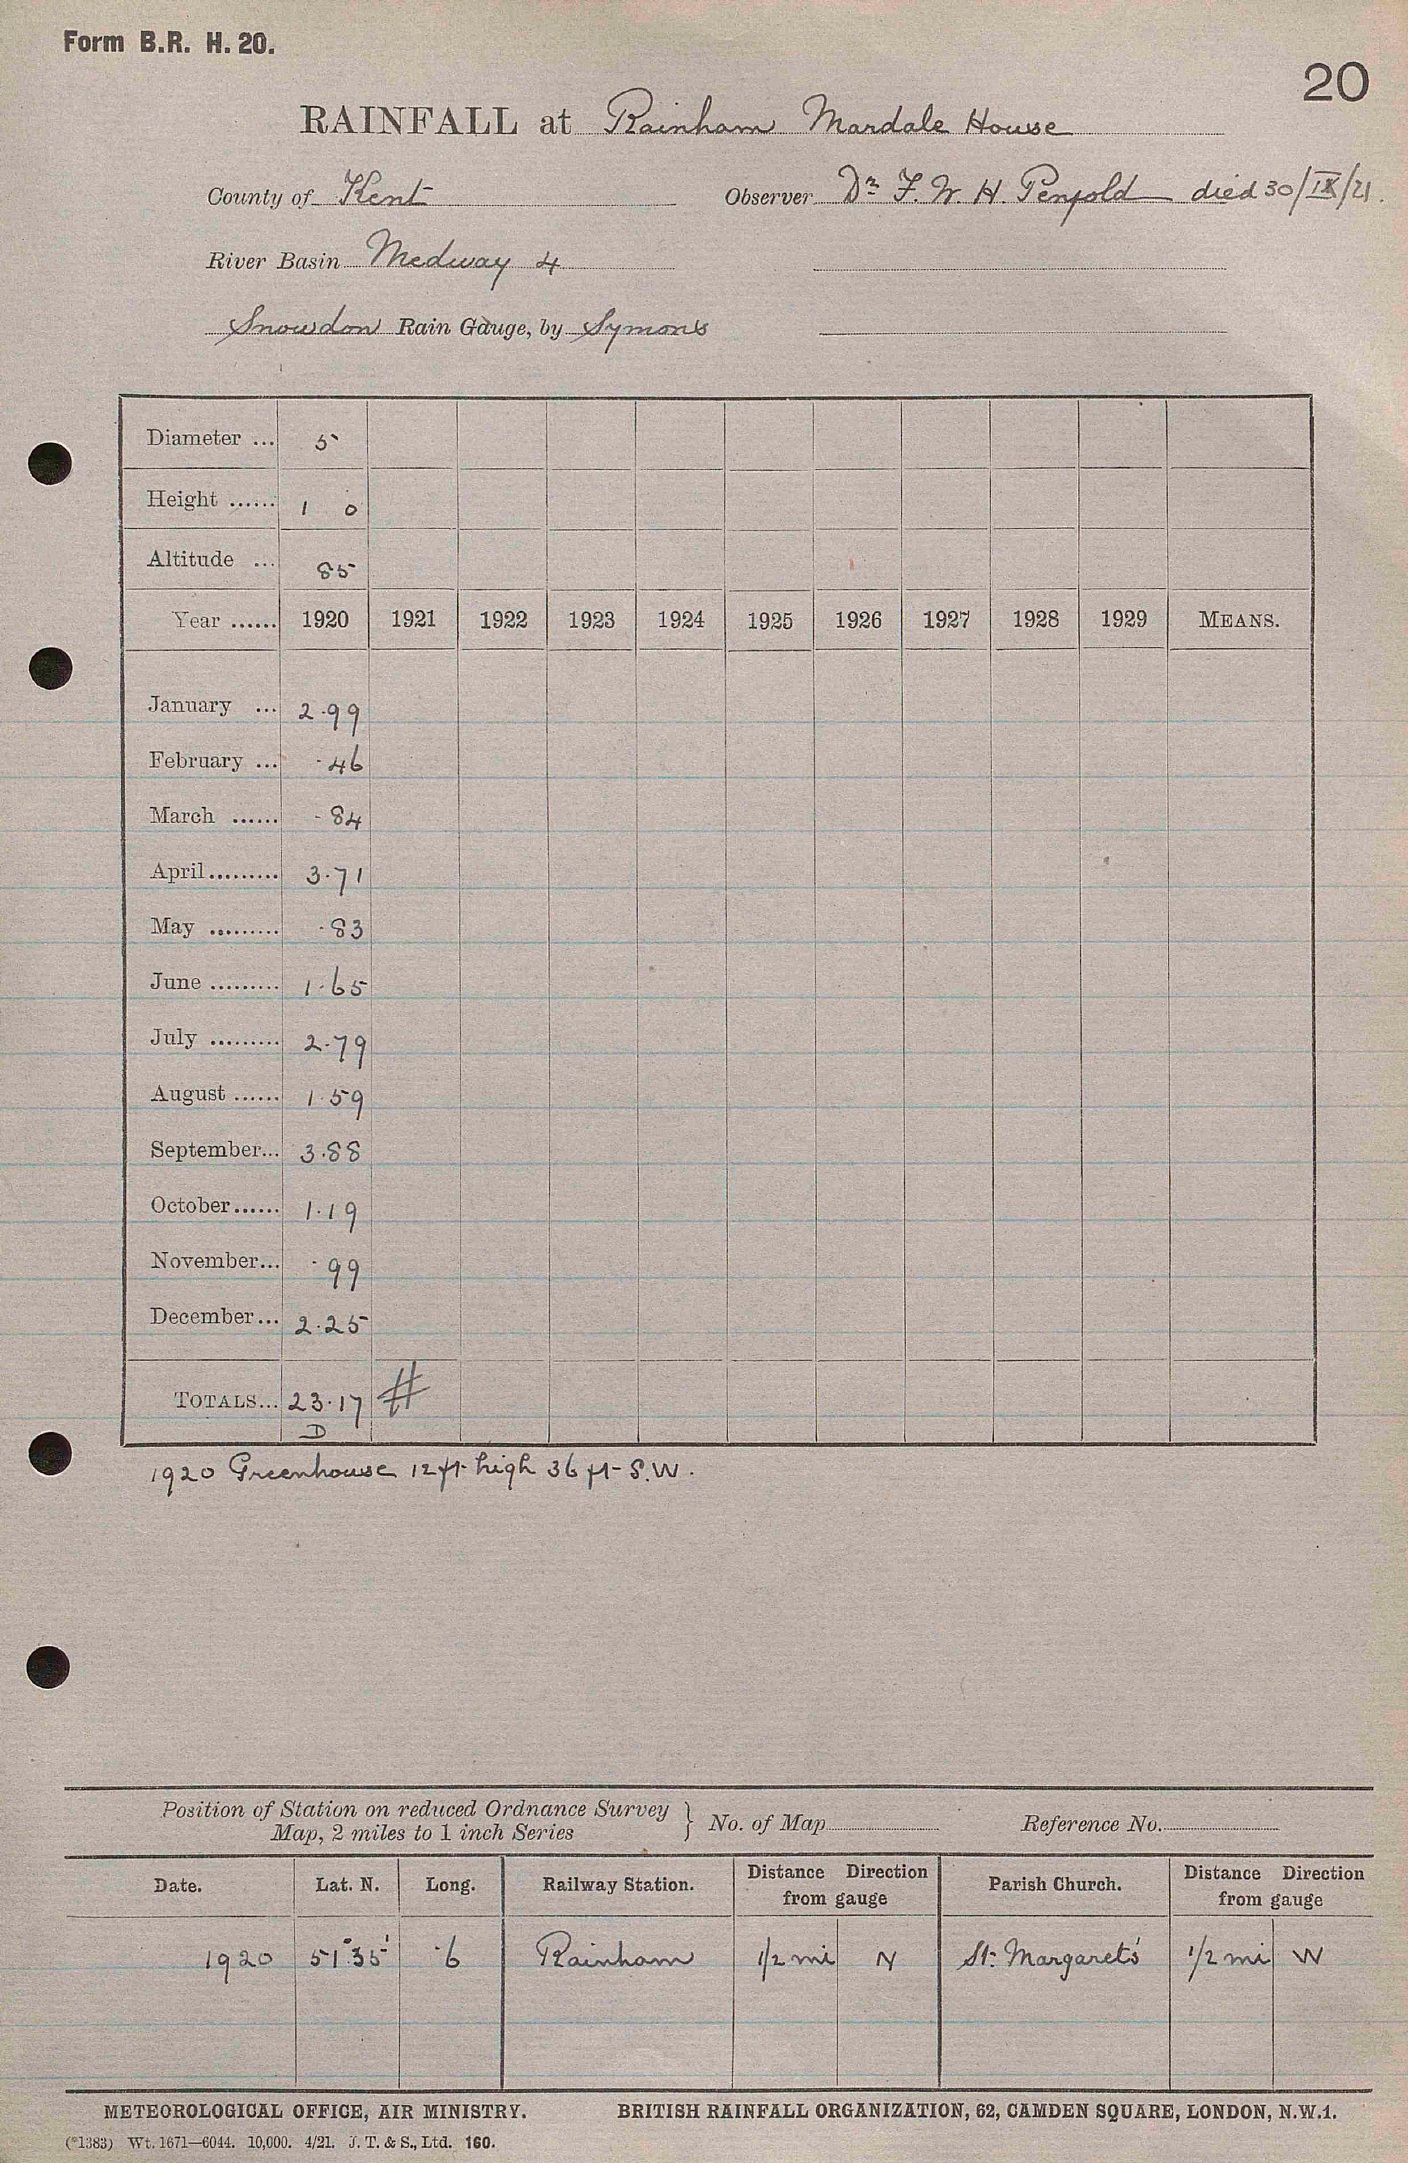 Form B.R. H. 20.
20
RAINFALL at Rainham Mardale House
County of Kent Observer Dr. F. W. H. Penfold died 30/IX/21.
River Basin Medway 4
Snowdon Rain Gauge, by Symons
Diameter ... 5
Height ...... 1 0
Altitude ... 85
Year ...... 1920 1921 1922 1923 1924 1925 1926 1927 1928 1929 MEANS.
January ... 2.99
February ... .46
March ...... .84
April......... 3.71
May ......... .83
June ......... 1.65
July ......... 2.79
August ...... 1.59
September... 3.88
October...... 1.19
November... .99
December... 2.25
TOTALS... 23.17 #
D
1920 Greenhouse 12 ft high 36 ft S.W.
Position of Station on reduced Ordnance Survey
Map, 2 miles to 1 inch Series } No. of Map Reference No.
Date. Lat. N. Long. Railway Station. Distance Direction from gauge Parish Church. Distance Direction from gauge
1920 51°35' .6 Rainham 1/2 mi N St. Margaret's 1/2 mi W
METEOROLOGICAL OFFICE, AIR MINISTRY. BRITISH RAINFALL ORGANIZATION, 62, CAMDEN SQUARE, LONDON, N.W.1.
(*1383) Wt. 1671—6044. 10,000. 4/21. J. T. & S., Ltd. 160.